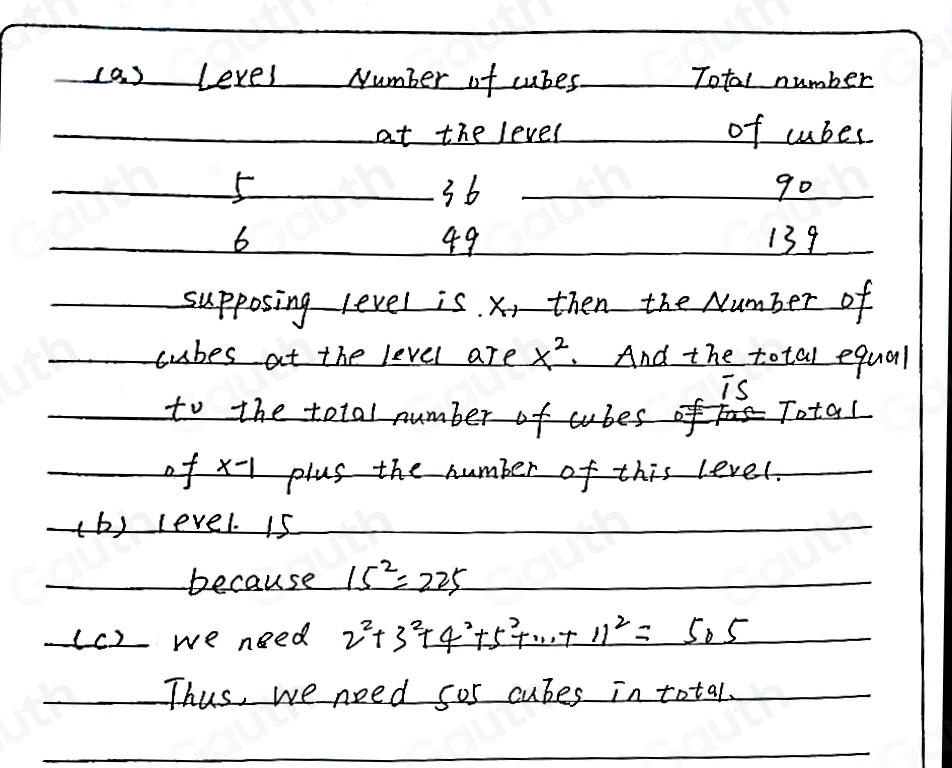 (a) Level Number of cubes Total number
at the level of cubes
5 36 90
6 49 139
supposing level is x, then the Number of
cubes at the level are x². And the total equal
is
to the total number of cubes of Total
of x-1 plus the number of this level.
(b) level. 15
because 15²=225
(c) we need 2²+3²+4²+5²+...+11²= 505
Thus, we need 505 cubes in total.